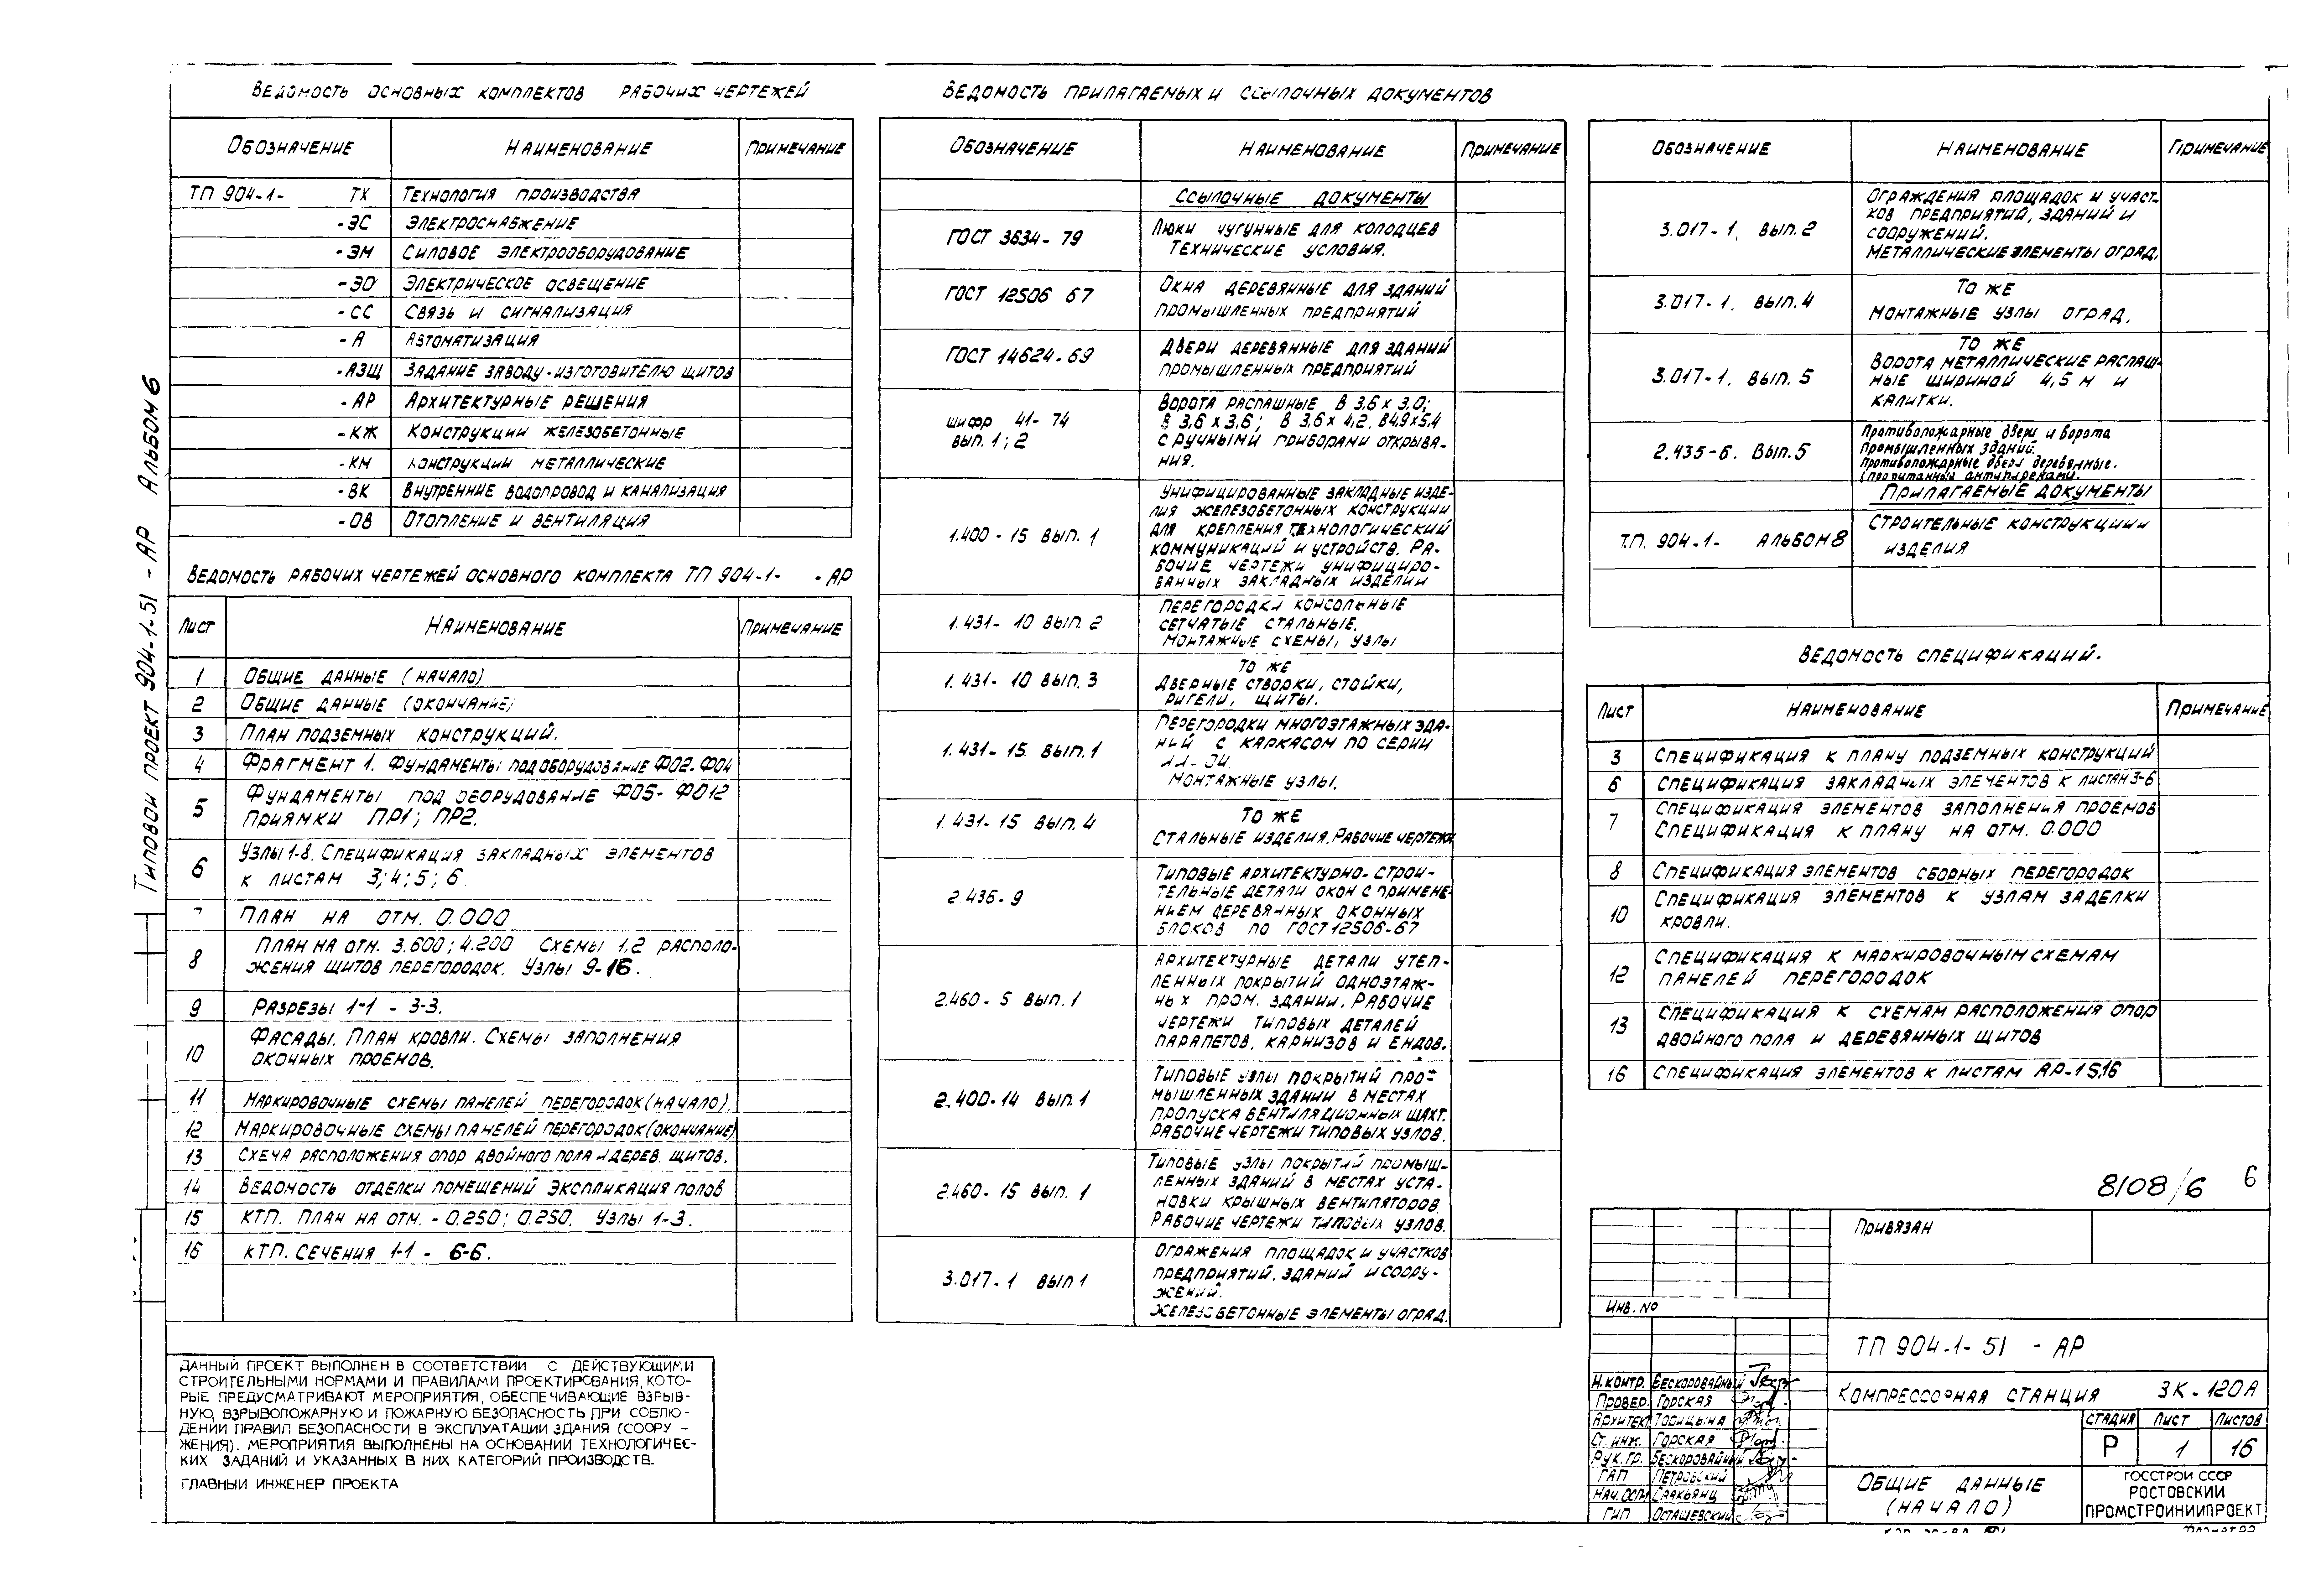 Типовой проект 904-1-51 - АР Альбом 6
Ведомость основных комплектов рабочих чертежей
Обозначение Наименование Примечание
ТП 904-1- ТХ Технология производства
-ЭС Электроснабжение
-ЭМ Силовое электрооборудование
-ЭО Электрическое освещение
-СС Связь и сигнализация
-А Автоматизация
-АЗЩ Задание заводу-изготовителю щитов
-АР Архитектурные решения
-КЖ Конструкции железобетонные
-КМ Конструкции металлические
-ВК Внутренние водопровод и канализация
-ОВ Отопление и вентиляция
Ведомость рабочих чертежей основного комплекта ТП 904-1- -АР
Лист Наименование Примечание
1 Общие данные (начало)
2 Общие данные (окончание)
3 План подземных конструкций.
4 Фрагмент 1. Фундаменты под оборудование ФО2-ФО4
5 Фундаменты под оборудование ФО5-ФО12
Приямки ПР1; ПР2.
6 Узлы 1-8. Спецификация закладных элементов
к листам 3;4;5;6.
7 План на отм. 0.000
8 План на отм. 3.600; 4.200 Схемы 1,2 располо-
жения щитов перегородок. Узлы 9-16.
9 Разрезы 1-1 - 3-3.
10 Фасады. План кровли. Схемы заполнения
оконных проемов.
11 Маркировочные схемы панелей перегородок (начало).
12 Маркировочные схемы панелей перегородок (окончание)
13 Схема расположения опор двойного пола и дерев. щитов.
14 Ведомость отделки помещений Экспликация полов
15 КТП. План на отм. -0.250; 0.250. Узлы 1-3.
16 КТП. Сечения 1-1 - 6-6.
Данный проект выполнен в соответствии с действующими
строительными нормами и правилами проектирования, кото-
рые предусматривают мероприятия, обеспечивающие взрыв-
ную, взрывопожарную и пожарную безопасность при соблю-
дении правил безопасности в эксплуатации здания (соору-
жения). Мероприятия выполнены на основании технологичес-
ких заданий и указанных в них категорий производств.
Главный инженер проекта
Ведомость прилагаемых и ссылочных документов
Обозначение Наименование Примечание
Ссылочные документы
ГОСТ 3634-79 Люки чугунные для колодцев
Технические условия.
ГОСТ 12506 67 Окна деревянные для зданий
промышленных предприятий
ГОСТ 14624-69 Двери деревянные для зданий
промышленных предприятий
шифр 41-74
вып. 1; 2
Ворота распашные В 3,6х3,0;
В 3,6х3,6; В 3,6х4,2, В4,9х5,4
с ручными приборами открыва-
ния.
1.400-15 вып. 1 Унифицированные закладные изде-
лия железобетонных конструкции
для крепления технологический
коммуникаций и устройств. Ра-
бочие чертежи унифициро-
ванных закладных изделий
1.431-10 вып. 2 Перегородки консольные
сетчатые стальные.
Монтажные схемы, узлы
1.431-10 вып. 3 То же
Дверные створки, стойки,
ригели, щиты.
1.431-15. вып. 1 Перегородки многоэтажных зда-
ний с каркасом по серии
ИИ-04.
Монтажные узлы.
1.431-15 вып. 4 То же
Стальные изделия. Рабочие чертежи
2.436-9 Типовые архитектурно-строи-
тельные детали окон с примене-
нием деревянных оконных
блоков по ГОСТ 12506-67
2.460-5 вып. 1 Архитектурные детали утеп-
ленных покрытий одноэтаж-
ных пром. здании. Рабочие
чертежи типовых деталей
парапетов, карнизов и ендов.
2.400-14 вып. 1 Типовые узлы покрытий про-
мышленных здании в местах
пропуска вентиляционных шахт.
Рабочие чертежи типовых узлов.
2.460-15 вып. 1 Типовые узлы покрытий промыш-
ленных зданий в местах уста-
новки крышных вентиляторов
Рабочие чертежи типовых узлов.
3.017-1 вып 1 Огражения площадок и участков
предприятий, зданий и соору-
жений.
Железобетонные элементы оград.
Обозначение Наименование Примечание
3.017-1. вып. 2 Ограждения площадок и участ-
ков предприятий, зданий и
сооружений.
Металлические элементы оград.
3.017-1. вып. 4 То же
Монтажные узлы оград.
3.017-1. вып. 5 То же
Ворота металлические распаш-
ные шириной 4,5 м и
калитки.
2.435-6. вып. 5 Противопожарные двери и ворота
промышленных зданий.
Противопожарные двери деревянные.
(пропитанные антипиренами.
Прилагаемые документы
Т.П. 904-1- Альбом 8 Строительные конструкциии
изделия
Ведомость спецификаций.
Лист Наименование Примечание
3 Спецификация к плану подземных конструкций
6 Спецификация закладных элементов к листам 3-6
7 Спецификация элементов заполнения проемов
Спецификация к плану на отм. 0.000
8 Спецификация элементов сборных перегородок
10 Спецификация элементов к узлам заделки
кровли.
12 Спецификация к маркировочным схемам
панелей перегородок
13 Спецификация к схемам расположения опор
двойного пола и деревянных щитов
16 Спецификация элементов к листам АР-15,16
8108/6 6
Привязан
Инв. №
ТП 904-1-51 - АР
Компрессорная станция 3К-120А
Н. контр. Бескоровайный
Провер. Горская
Архитект. Торицына
Ст. инж. Горская
Рук. гр. Бескоровайный
ГАП Петровский
Нач. осп Саакьянц
ГИП Осташевский
Стадия Лист Листов
Р 1 16
Общие данные
(начало)
Госстрой СССР
Ростовский
Промстройниипроект